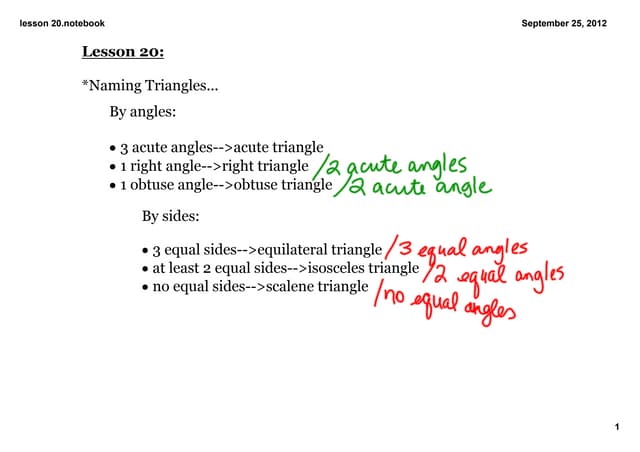 lesson 20.notebook September 25, 2012
Lesson 20:
*Naming Triangles...
By angles:
• 3 acute angles-->acute triangle
• 1 right angle-->right triangle /2 acute angles
• 1 obtuse angle-->obtuse triangle /2 acute angle
By sides:
• 3 equal sides-->equilateral triangle /3 equal angles
• at least 2 equal sides-->isosceles triangle /2 equal angles
• no equal sides-->scalene triangle /no equal angles
1